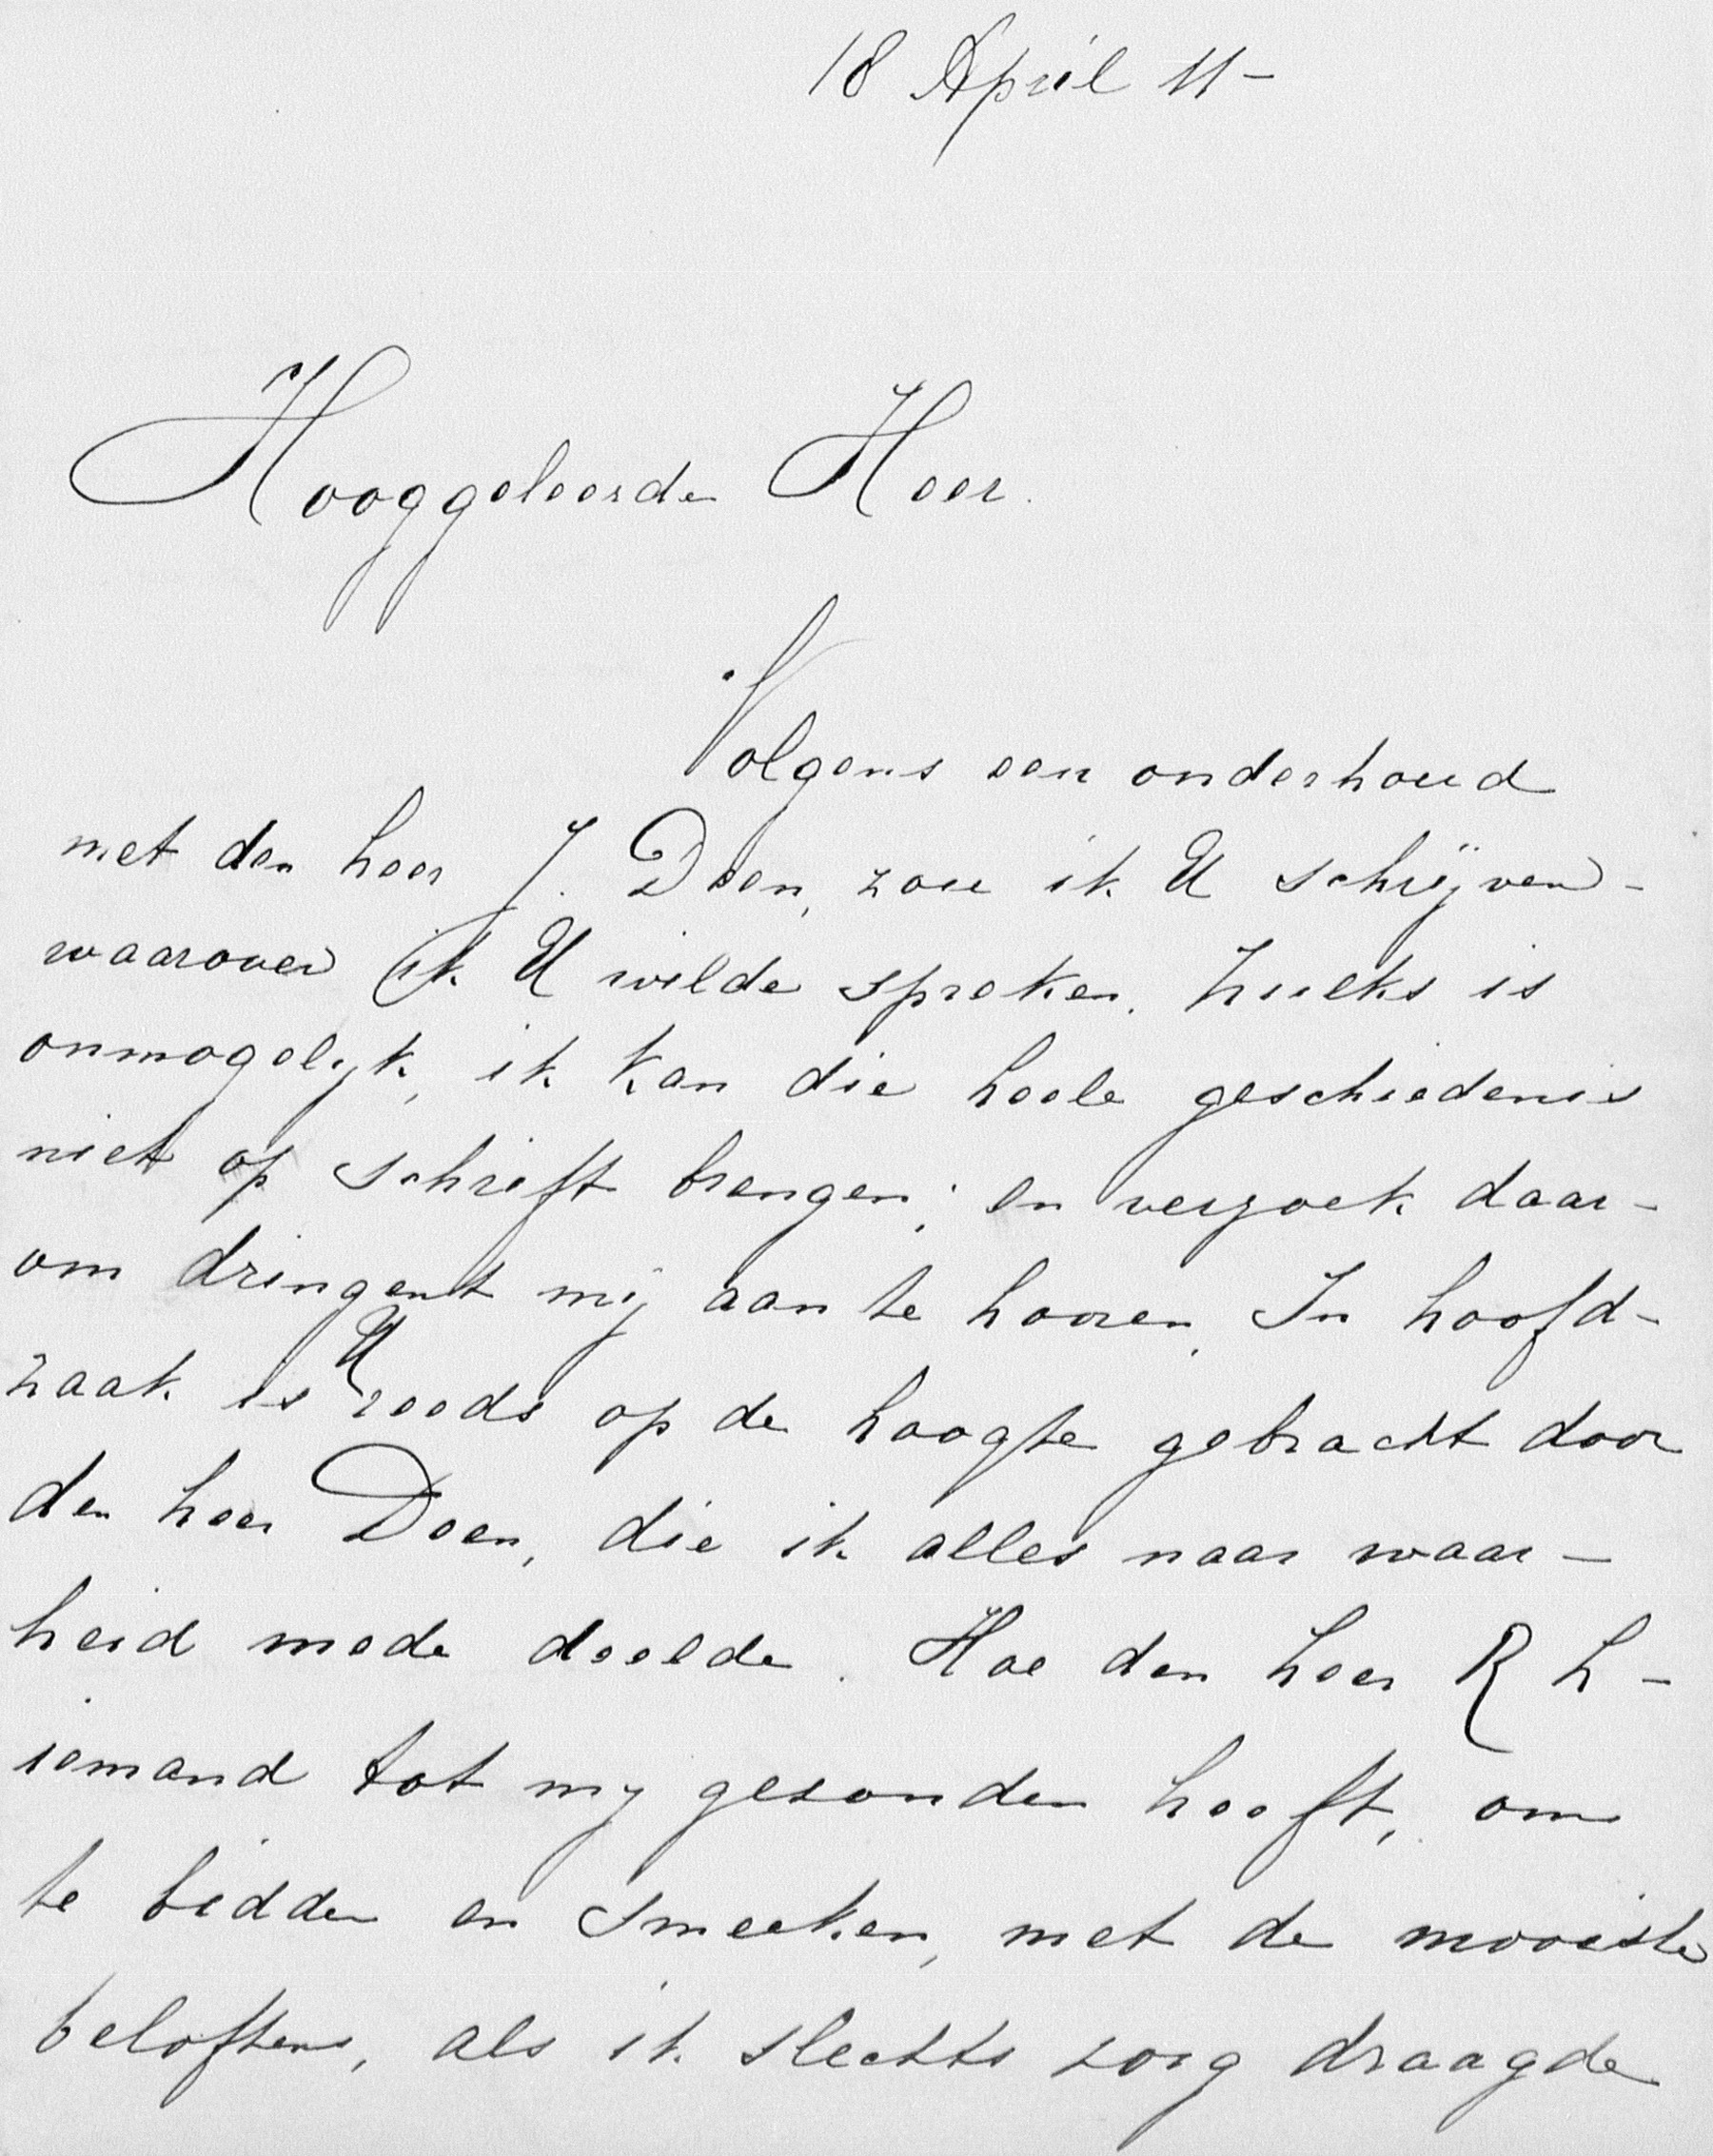 18 April 11-
Hooggeleerde Heer.
Volgens een onderhoud
met den heer J. Deen, zou ik U schrijven -
waarover ik U wilde spreken. Zulks is
onmogelijk, ik kan die heele geschiedenis
niet op schrift brengen; en verzoek daar-
om dringent mij aan te hooren. In hoofd-
zaak is U reeds op de hoogte gebracht door
den heer Deen, die ik alles naar waar-
heid mede deelde. Hoe den heer R h -
iemand tot mij gesonden heeft, om
te bidden en smeeken, met de mooiste
beloftens, als ik slechts zorg draagde